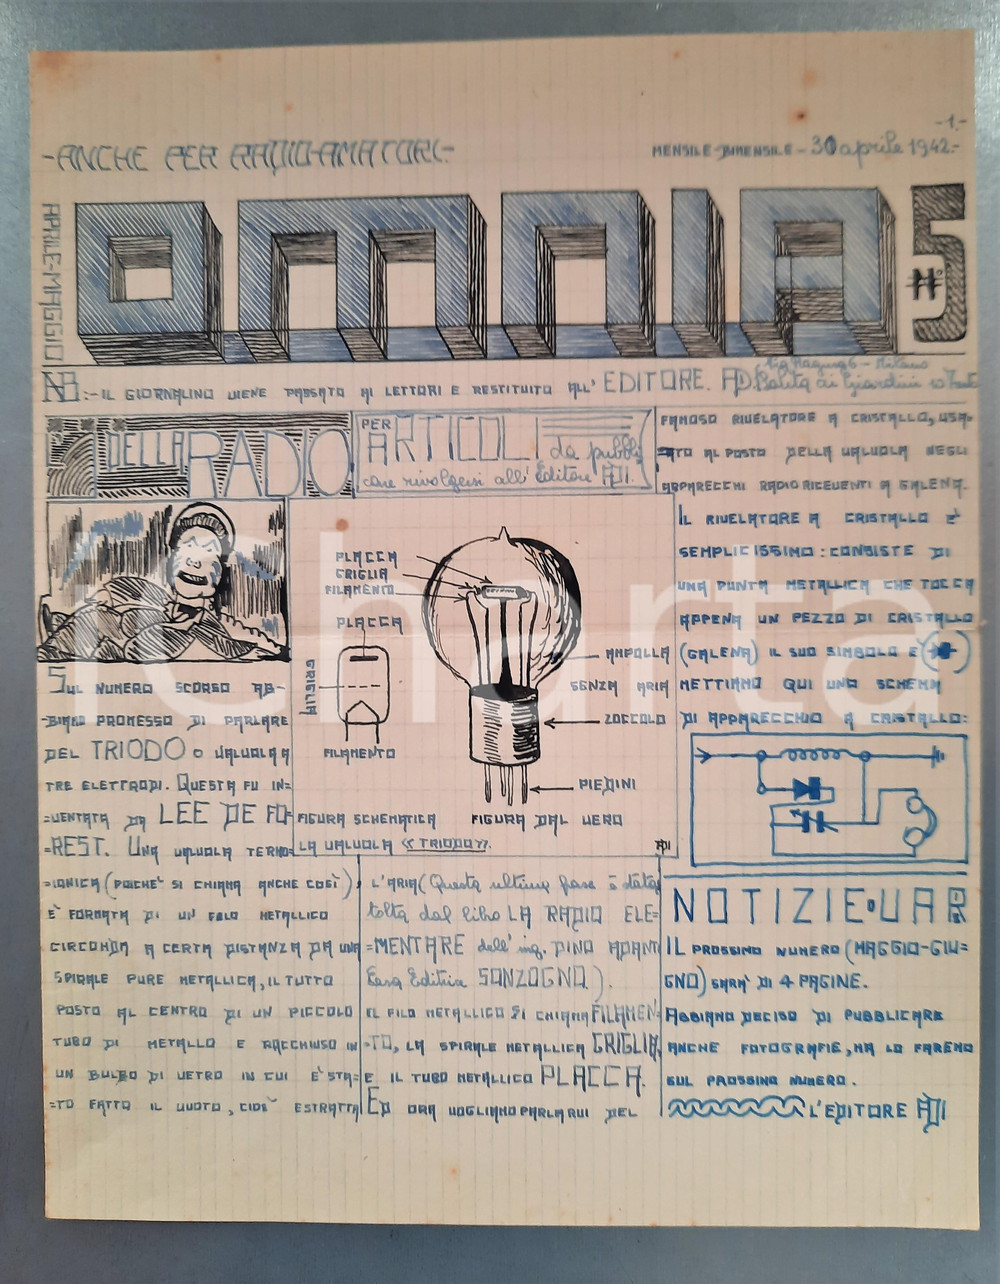 -1.-
-ANCHE PER RADIO-AMATORI.-
MENSILE-BIMENSILE - 30 aprile 1942.-
APRILE-MAGGIO
OMNIA
N° 5
Milano
NB:-IL GIORNALINO VIENE PASSATO AI LETTORI E RESTITUITO ALL'EDITORE. AD.
DELLA RADIO
PER ARTICOLI da pubbli
care rivolgersi all'Editore ADI.
SUL NUMERO SCORSO AB-
-BIAMO PROMESSO DI PARLARE
DEL TRIODO O VALVOLA A
TRE ELETTRODI. QUESTA FU IN=
=VENTATA DA LEE DE FO=
=REST. UNA VALVOLA TERMO=
=IONICA (POICHE' SI CHIAMA ANCHE COSÌ)
E' FORMATA DI UN FILO METALLICO
CIRCONDA A CERTA DISTANZA DA UNA
SPIRALE PURE METALLICA, IL TUTTO
POSTO AL CENTRO DI UN PICCOLO
TUBO DI METALLO E RACCHIUSO IN
UN BULBO DI VETRO IN CUI E' STA=
=TO FATTO IL VUOTO, CIOE' ESTRATTA
PLACCA
GRIGLIA
FILAMENTO
PLACCA
GRIGLIA
FILAMENTO
AMPOLLA
SENZA ARIA
ZOCCOLO
PIEDINI
FIGURA SCHEMATICA
LA VALVOLA «TRIODO».
FIGURA DAL VERO
ADI
L'ARIA (Questa ultima frase è stata
tolta dal libro LA RADIO ELE=
=MENTARE dell'ing. DINO ADANTI
Casa Editrice SONZOGNO).
IL FILO METALLICO SI CHIAMA FILAMEN=
=TO, LA SPIRALE METALLICA GRIGLIA,
E IL TUBO METALLICO PLACCA.
ED ORA VOGLIAMO PARLARVI DEL
FAMOSO RIVELATORE A CRISTALLO, USA=
=TO AL POSTO DELLA VALVOLA NEGLI
APPARECCHI RADIORICEVENTI A GALENA.
IL RIVELATORE A CRISTALLO E'
SEMPLICISSIMO: CONSISTE DI
UNA PUNTA METALLICA CHE TOCCA
APPENA UN PEZZO DI CRISTALLO
(GALENA) IL SUO SIMBOLO E'
METTIAMO QUI UNO SCHEMA
DI APPARECCHIO A CRISTALLO:
NOTIZIE VAR
IL PROSSIMO NUMERO (MAGGIO-GIU=
GNO) SARA' DI 4 PAGINE.
ABBIAMO DECISO DI PUBBLICARE
ANCHE FOTOGRAFIE, MA LO FAREMO
SUL PROSSIMO NUMERO.
L'EDITORE ADI
iCharta